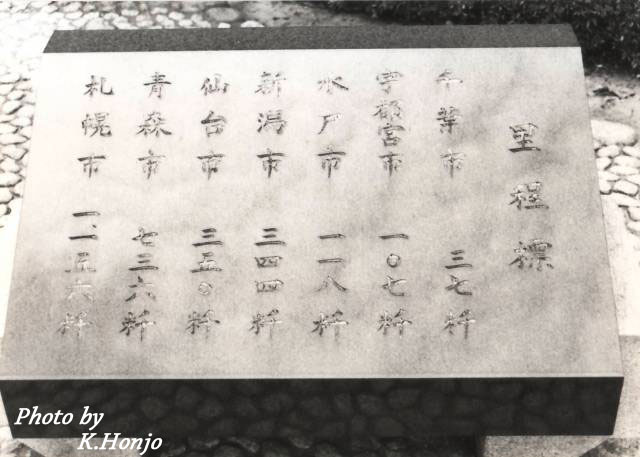 里程標
千葉市 三七粁
宇都宮市 一〇七粁
水戸市 一一八粁
新潟市 三四四粁
仙台市 三五〇粁
青森市 七三六粁
札幌市 一、一五六粁
Photo by
K.Honjo